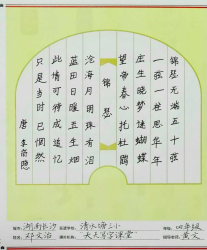 锦瑟无端五十弦
一弦一柱思华年
庄生晓梦迷蝴蝶
望帝春心托杜鹃
锦瑟
沧海月明珠有泪
蓝田日暖玉生烟
此情可待成追忆
只是当时已惘然
唐 李商隐
湖南长沙 清水塘三小 四年级
邓文浩 大大写字课堂 黄文